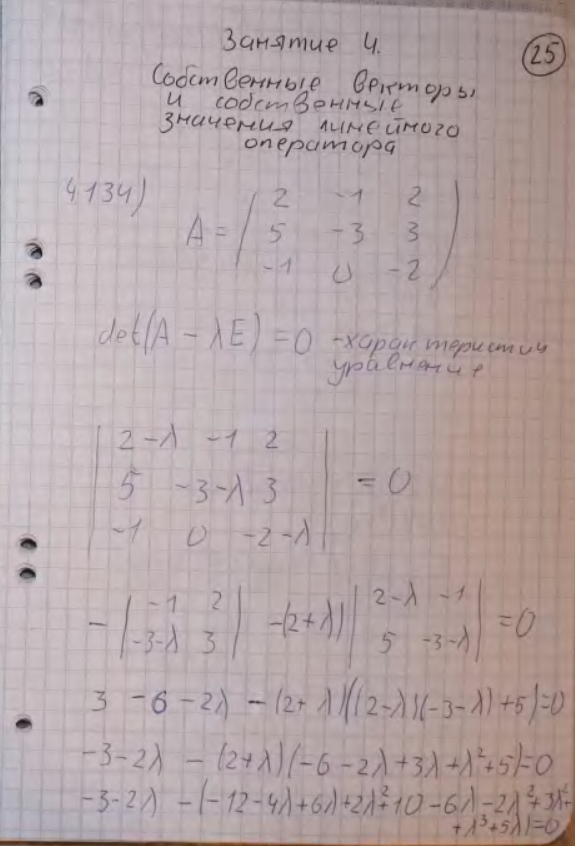 Занятие 4.
25
Собственные векторы
и собственные
значения линейного
оператора
4134)
A = ( 2 -1 2
5 -3 3
-1 0 -2 )
det(A - λE) = 0 - характеристич
уравнение
| 2-λ -1 2
5 -3-λ 3
-1 0 -2-λ | = 0
- | -1 2
-3-λ 3 | -(2+λ) | 2-λ -1
5 -3-λ | = 0
3 -6 -2λ - (2+λ)((2-λ)(-3-λ)+5)=0
-3-2λ - (2+λ)(-6-2λ+3λ+λ²+5)=0
-3-2λ - (-12-4λ+6λ+2λ²+10-6λ-2λ²+3λ²+
+λ³+5λ)=0